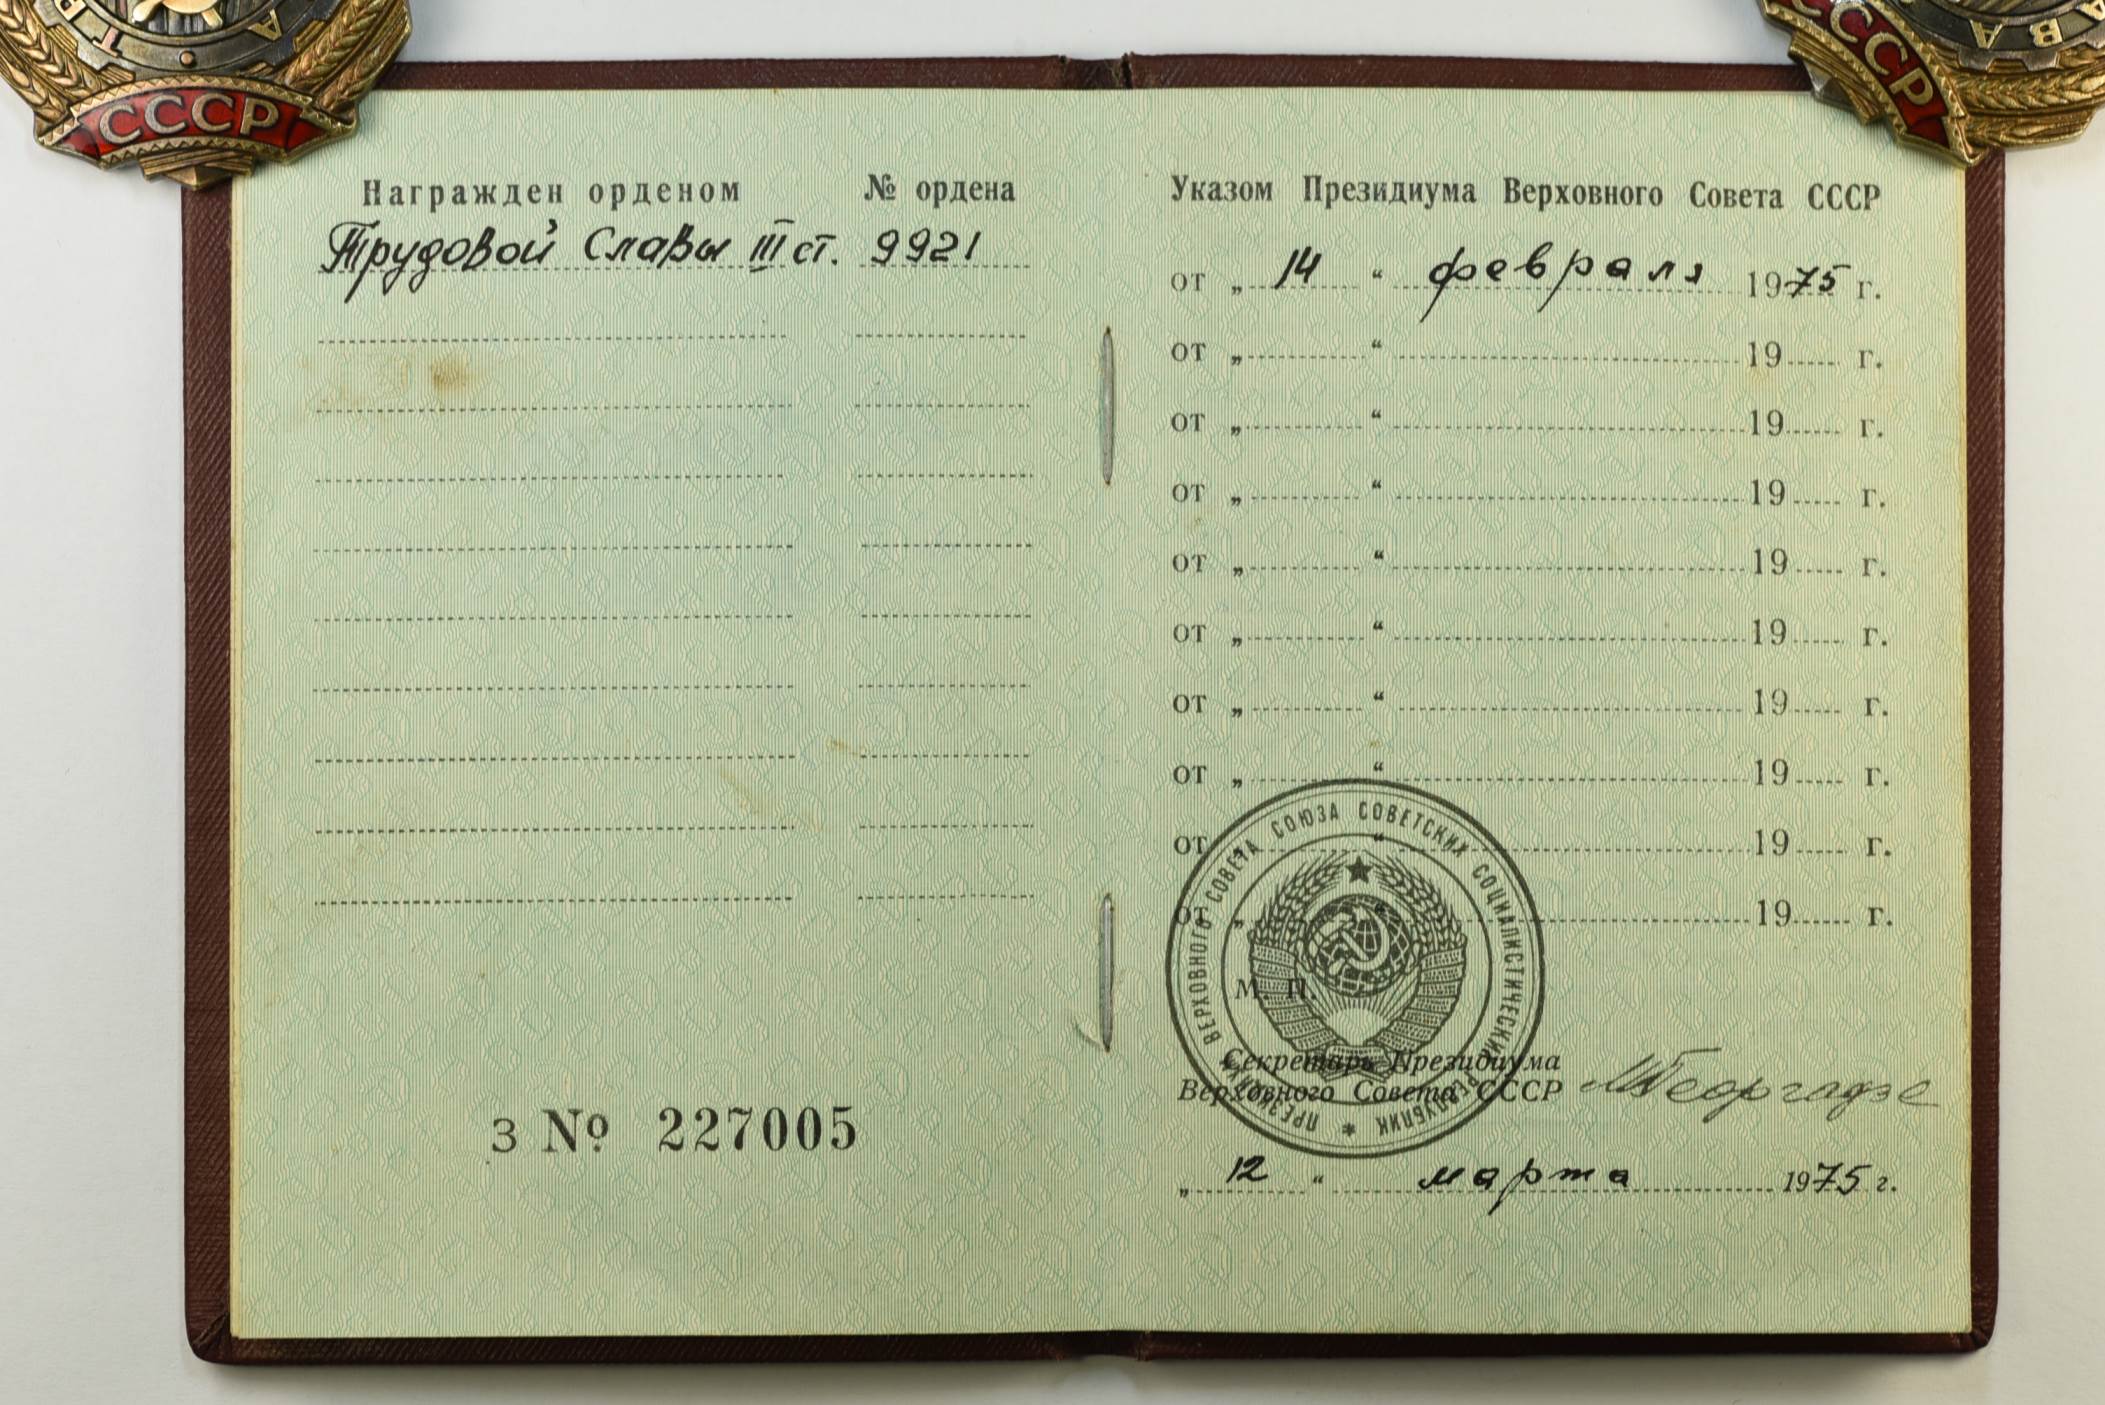 ТА
СССР
АВА
СССР
Награжден орденом № ордена
Трудовой Славы III ст. 9921
З № 227005
Указом Президиума Верховного Совета СССР
от „ 14 “ февраля 1975 г.
от „ “ 19 г.
от „ “ 19 г.
от „ “ 19 г.
от „ “ 19 г.
от „ “ 19 г.
от „ “ 19 г.
от „ “ 19 г.
от „ “ 19 г.
от „ “ 19 г.
ПРЕЗИДИУМ ВЕРХОВНОГО СОВЕТА СОЮЗА СОВЕТСКИХ СОЦИАЛИСТИЧЕСКИХ РЕСПУБЛИК *
М. П.
Секретарь Президиума
Верховного Совета СССР МГеоргадзе
„ 12 “ марта 1975 г.